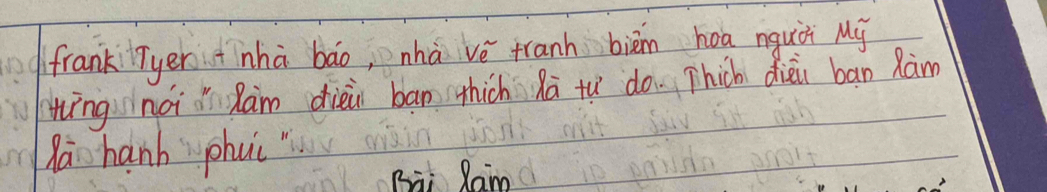 frank Tyen nhà báo, nhà vẽ tranh biếm hoa người Mỹ
từng nói "làm điều bạn thích là tự do. Thích điều bạn làm
là hạnh phúc".
Bài làm